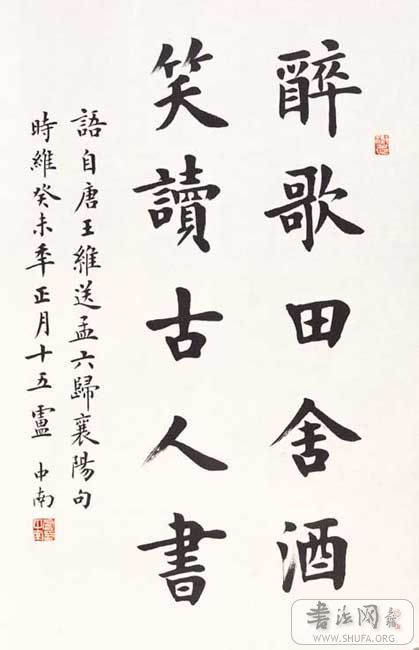 醉歌田舍酒
笑讀古人書
語自唐王維送孟六歸襄陽句
時維癸未年正月十五盧中南
書法网
WWW.SHUFA.COM